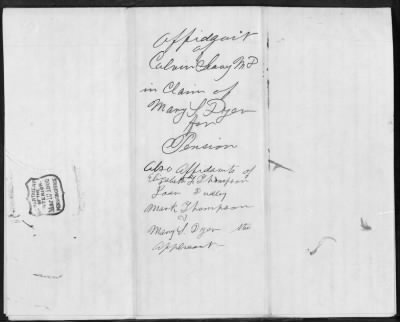 Affidavit
of
Calvin Seavy M D
in Claim of
Mary S. Dyer
for
Pension
Also Affidavits of
Elizabeth F Thompson
Dudley
Mark Thompson
&
Mary S. Dyer the
Applicant